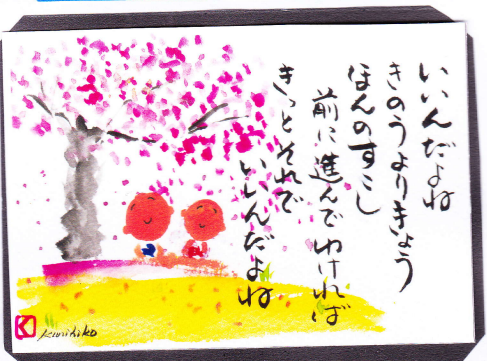 いいんだよね
きのうよりきょう
ほんのすこし
前に進んでゆければ
きっとそれで
いいんだよね
Kunihiko